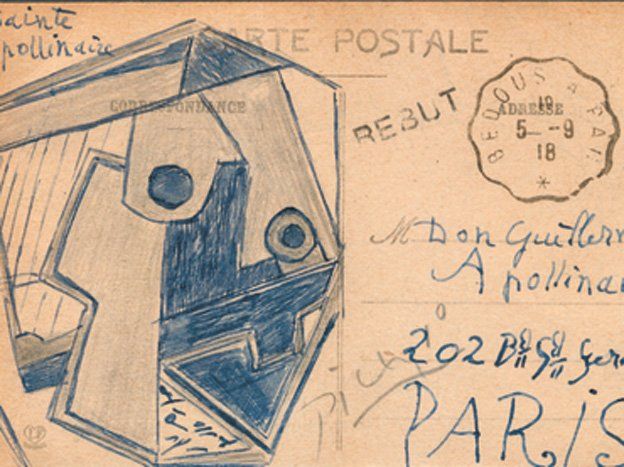 Sainte
pollinaire
CARTE POSTALE
CORRESPONDANCE
REBUT
BEDOUS A PAU
ADRESSE
5 -9
18
M Don Guillerm
Apollinai
202 Bd St Ger
PARIS